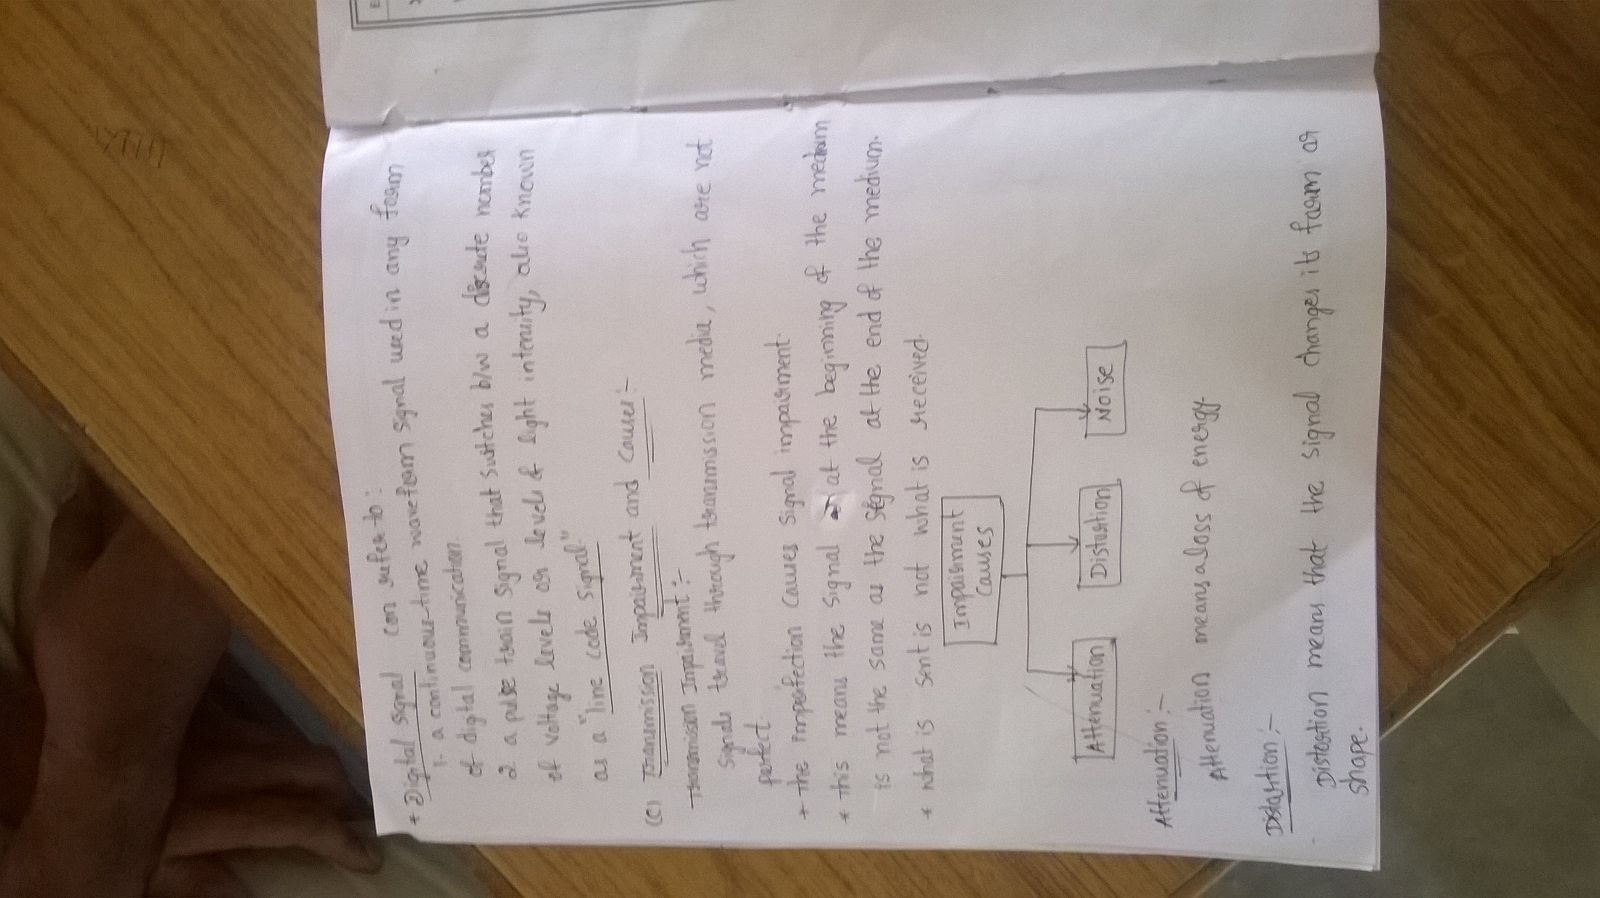 * Digital Signal can refer to:
1. a continuous-time waveform signal used in any form
of digital communication.
2. a pulse train signal that switches b/w a discrete number
of voltage levels or levels of light intensity, also known
as a "line code signal."
(C) Transmission Impairment and Causes:-
Transmission Impairment:-
Signals travel through transmission media, which are not
perfect.
* the imperfection causes signal impairment.
* this means the signal at the beginning of the medium
is not the same as the signal at the end of the medium.
* what is sent is not what is received.
Impairment
Causes
Attenuation Distortion Noise
Attenuation:-
Attenuation means a loss of energy.
Distortion:-
Distortion means that the signal changes its form or
shape.
E